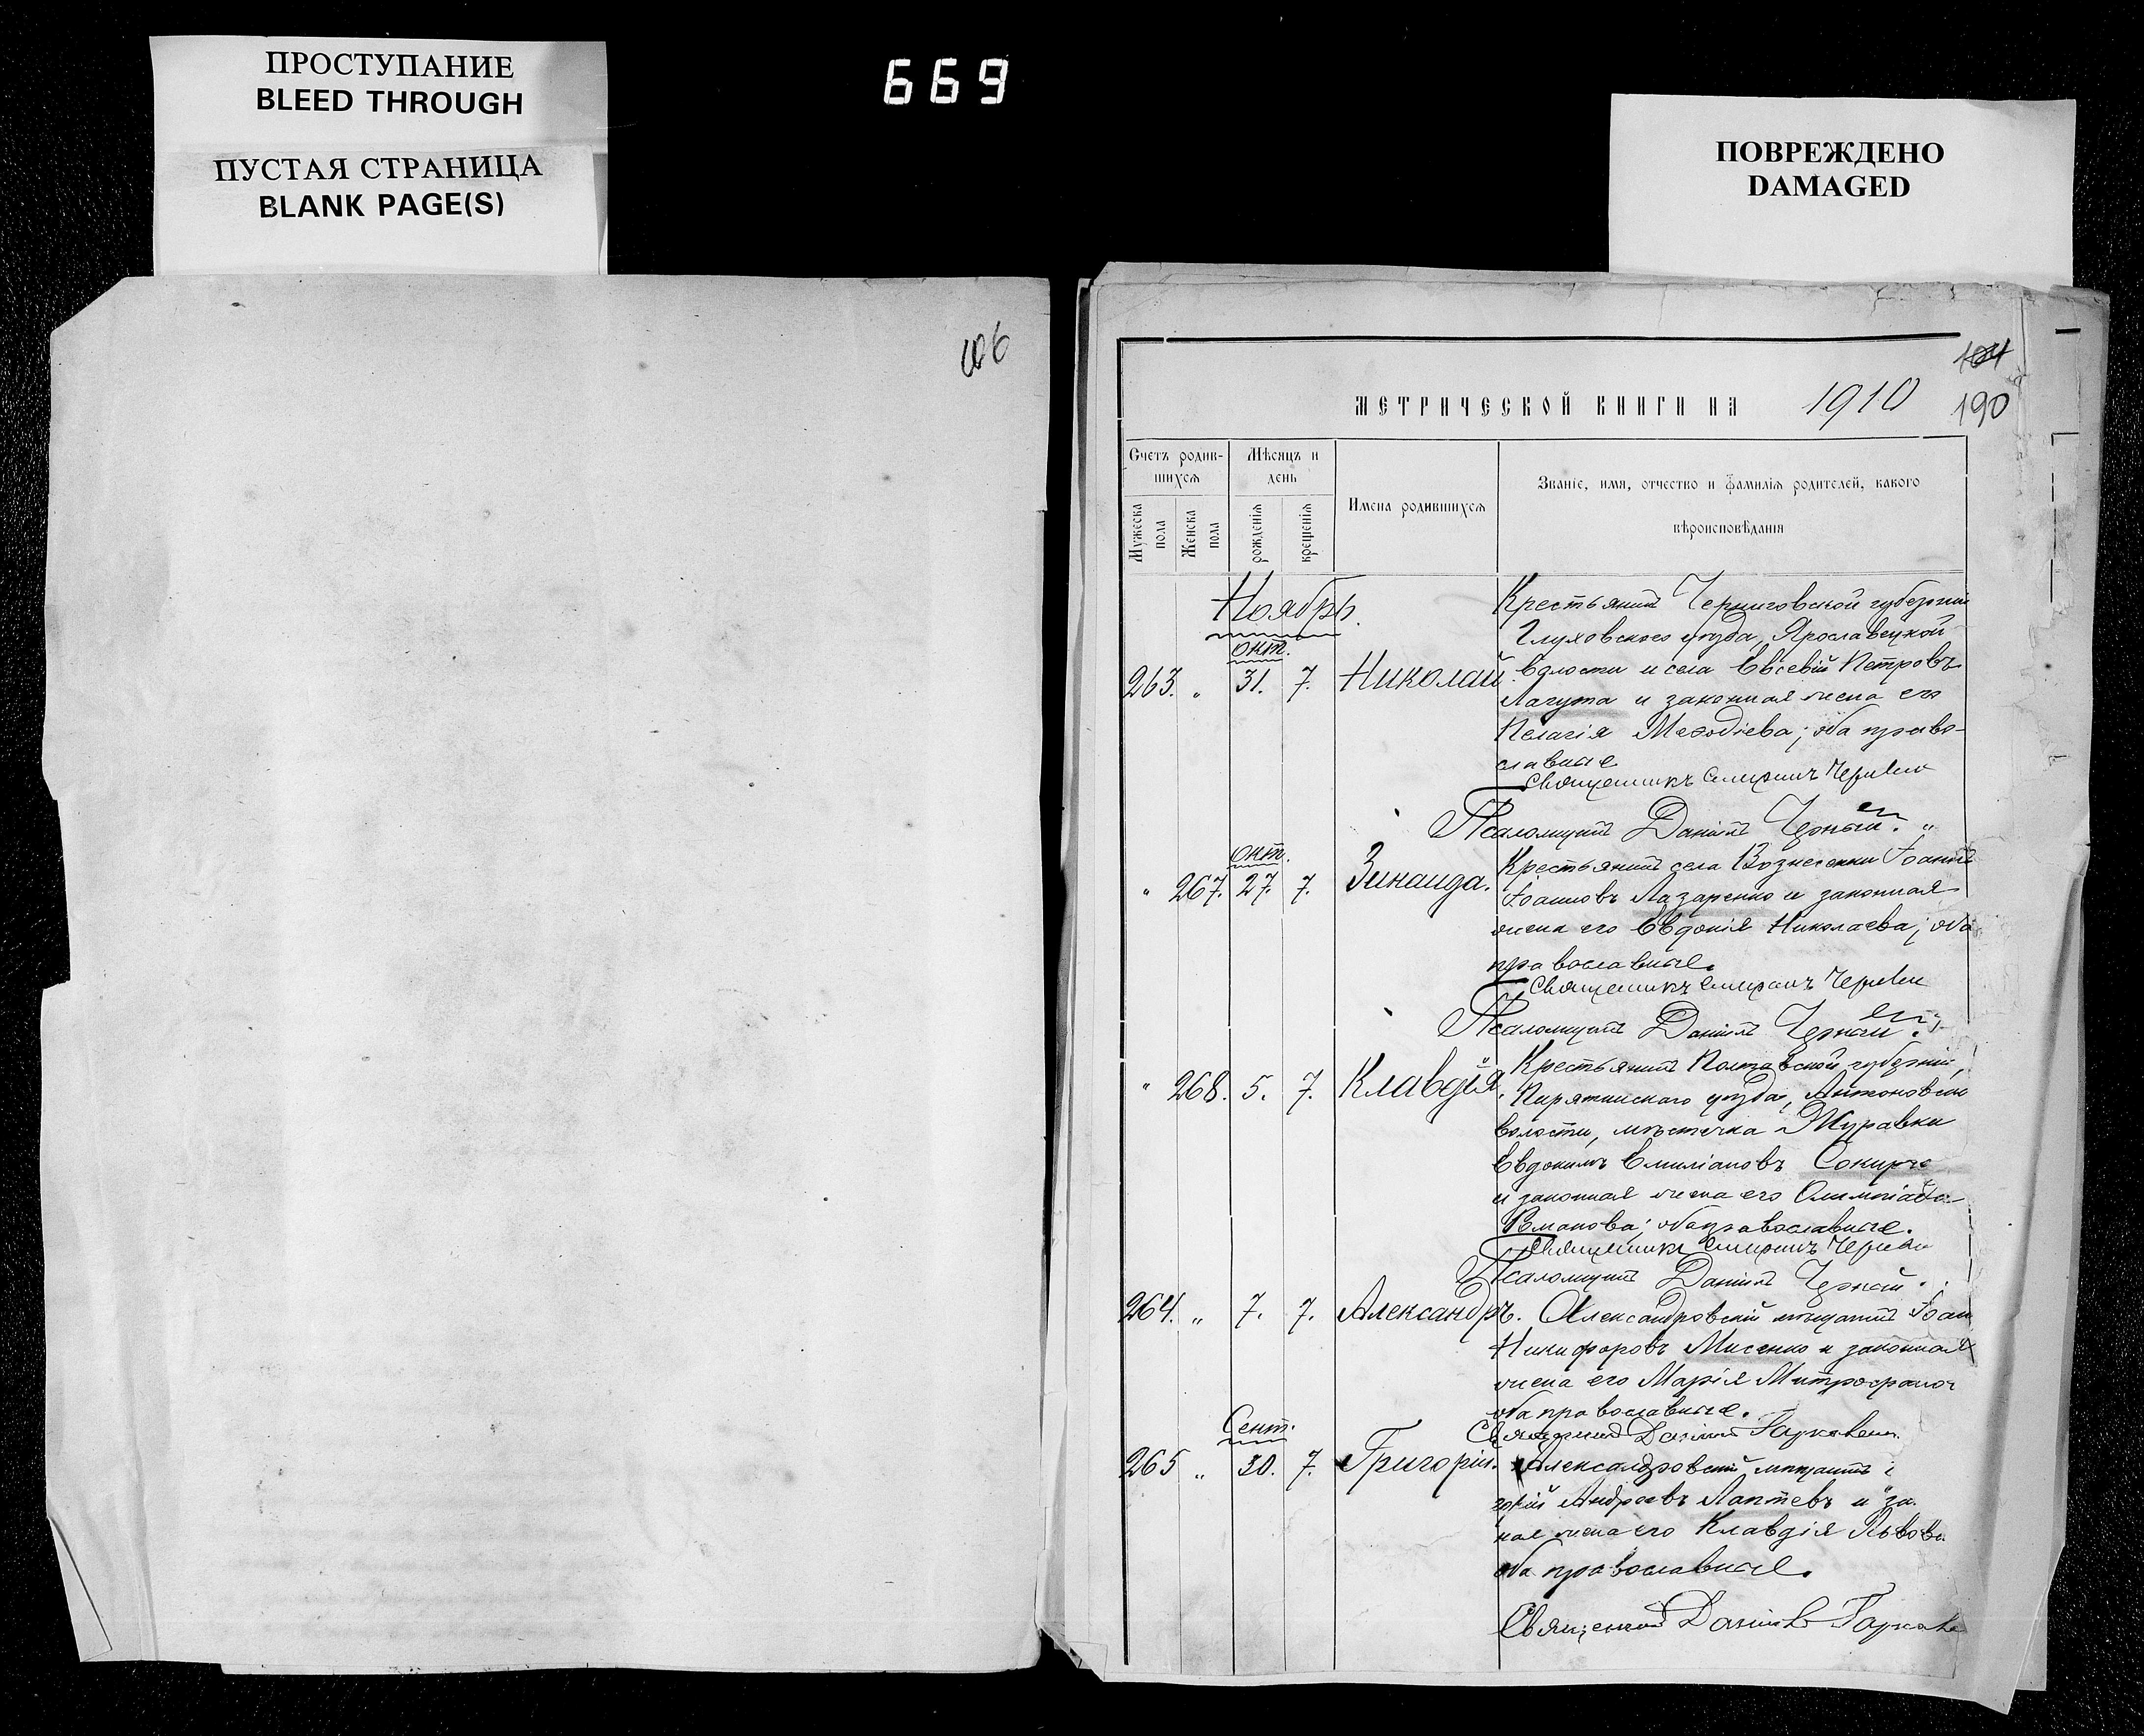 ПРОСТУПАНИЕ
BLEED THROUGH
ПУСТАЯ СТРАНИЦА
BLANK PAGE(S)
669
ПОВРЕЖДЕНО
DAMAGED
106
184
МЕТРИЧЕСКОЙ КНИГИ НА 1910 190
Счетъ родившихся
Мѣсяцъ и день
Имена родившихся
Званіе, имя, отчество и фамилія родителей, какого
вѣроисповѣданія
Мужеска пола
Женска пола
рожденія
крещенія
Ноябрь.
Крестьянинъ Черниговской губерніи
Глуховского уѣзда, Ярославецкой
окт.
263. „ 31. 7. Николай. волости и села Евсевій Петровъ
Лагута и законная жена его
Пелагія Меѳодіева; оба право-
славные
Священникъ
Псаломщикъ Даніилъ Черный. „
окт.
" 267. 27. 7. Зинаида. Крестьянинъ села Вознесенки Іоаннъ
Іоанновъ Лазаренко и законная
жена его Евдокія Николаева; оба
православные.
Священникъ
Псаломщикъ Даніилъ Черный.
" 268. 5. 7. Клавдія. Крестьянинъ Полтавской губерніи,
Пирятинскаго уѣзда, Антоновской
волости, мѣстечка Журавки
Евдокимъ Емиліановъ
и законная жена его Олимпіада
оба православные.
Священникъ
Псаломщикъ Даніилъ Черный.
264. „ 7. 7. Александръ. Александровскій мѣщанинъ Іоан
Никифоровъ Мисенко и законная
жена его Марія Митрофано
оба православные.
Священникъ Даніилъ
Сент.
265 „ 30. 7. Григорій. Александровскій мѣщанинъ
горій Андреевъ Лаптевъ и за
ная жена его Клавдія Львова
оба православные.
Священникъ Даніилъ